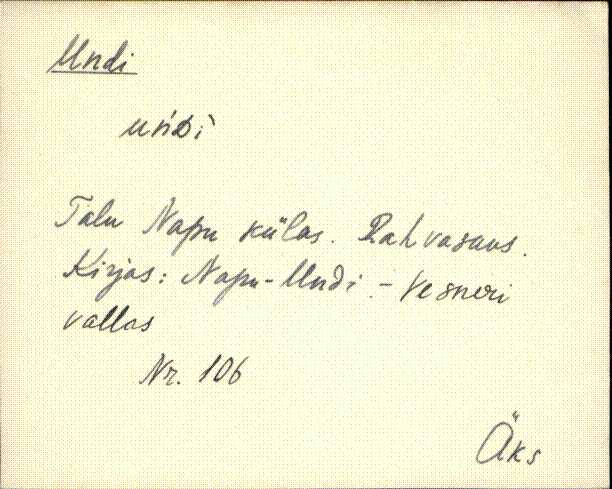 Undi
uńDì
Talu Napu külas. Rahvasuus.
Kirjas: Napu-Undi. - Vesneri
vallas
Nr. 106
Äks